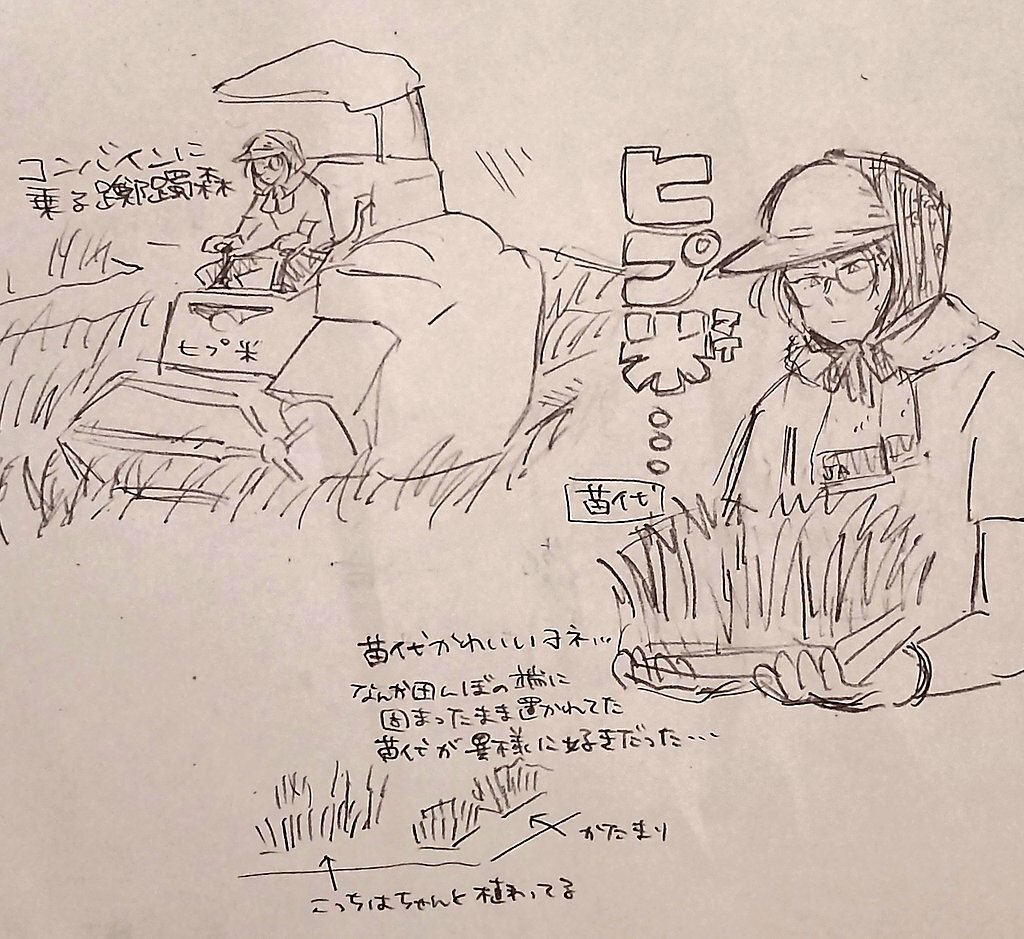 コンバインに
乗る躑躅森
ヒプ米
ヒプ米
苗代
JA
苗代かわいいよネ...
なんか田んぼの端に
固まったまま置かれてた
苗代が異様に好きだった...
かたまり
こっちはちゃんと植わってる